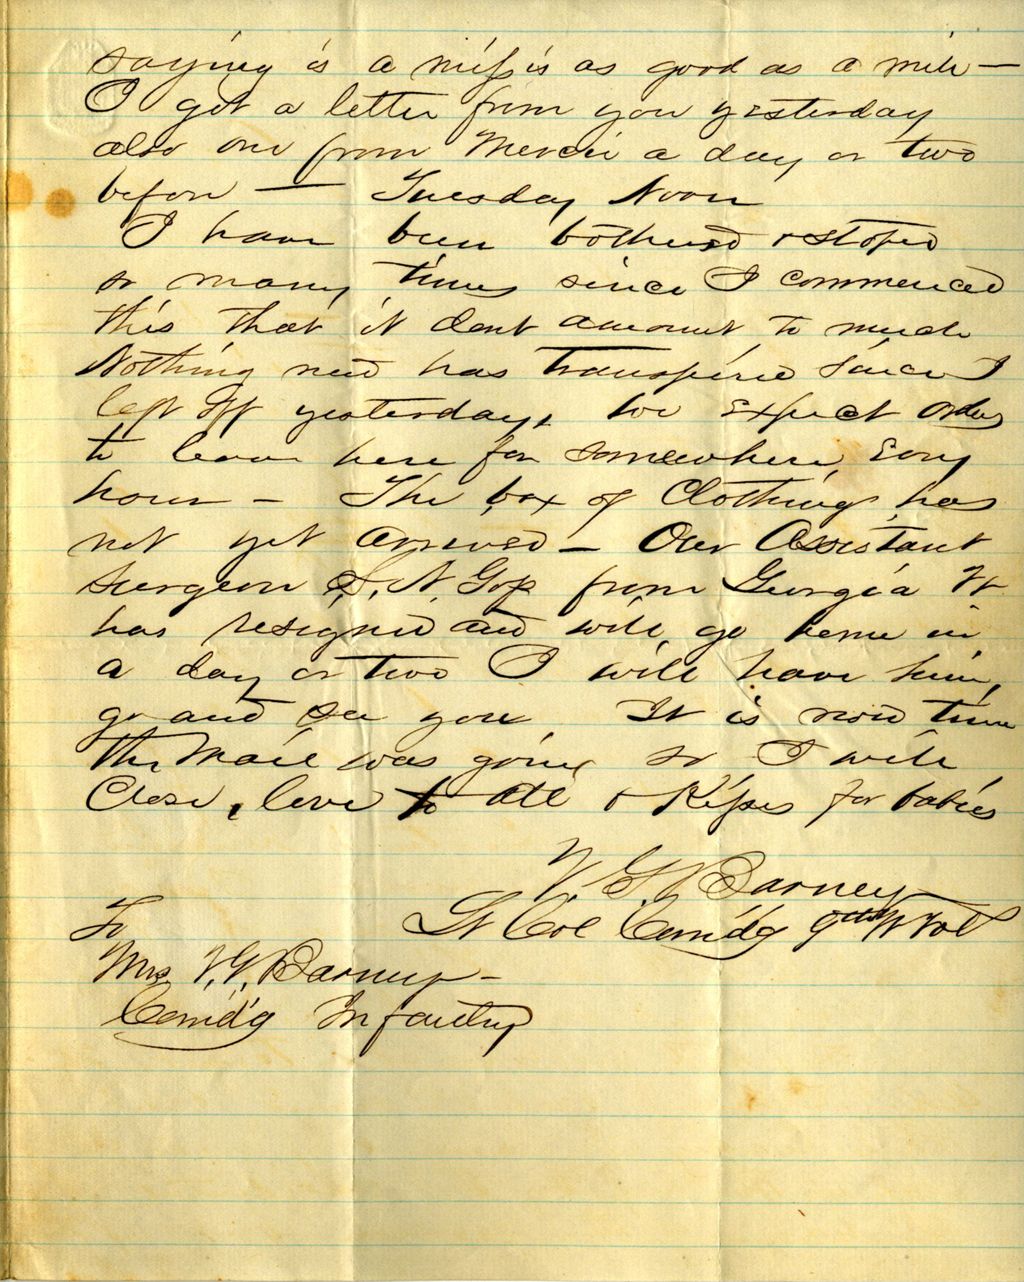 saying is a miss is as good as a mile —
I got a letter from you yesterday
also one from Mercie a day or two
before — Tuesday Noon
I have been bothered & stoped
so many times since I commenced
this that it dont amount to much
Nothing new has transpired since I
left off yesterday, we expect orders
to leave here for somewhere evry
hour — The box of Clothing has
not yet arrived — Our Assistant
surgeon S. N. from Georgia Vt
has resigned and will go home in
a day or two I will have him
go and see you It is now time
the mail was going so I will
Close, love to all & Kisses for babies
V G Barney
Lt Col Comdg 9th Vt Vol
To
Mrs V. G. Barney —
Comdg Infantry